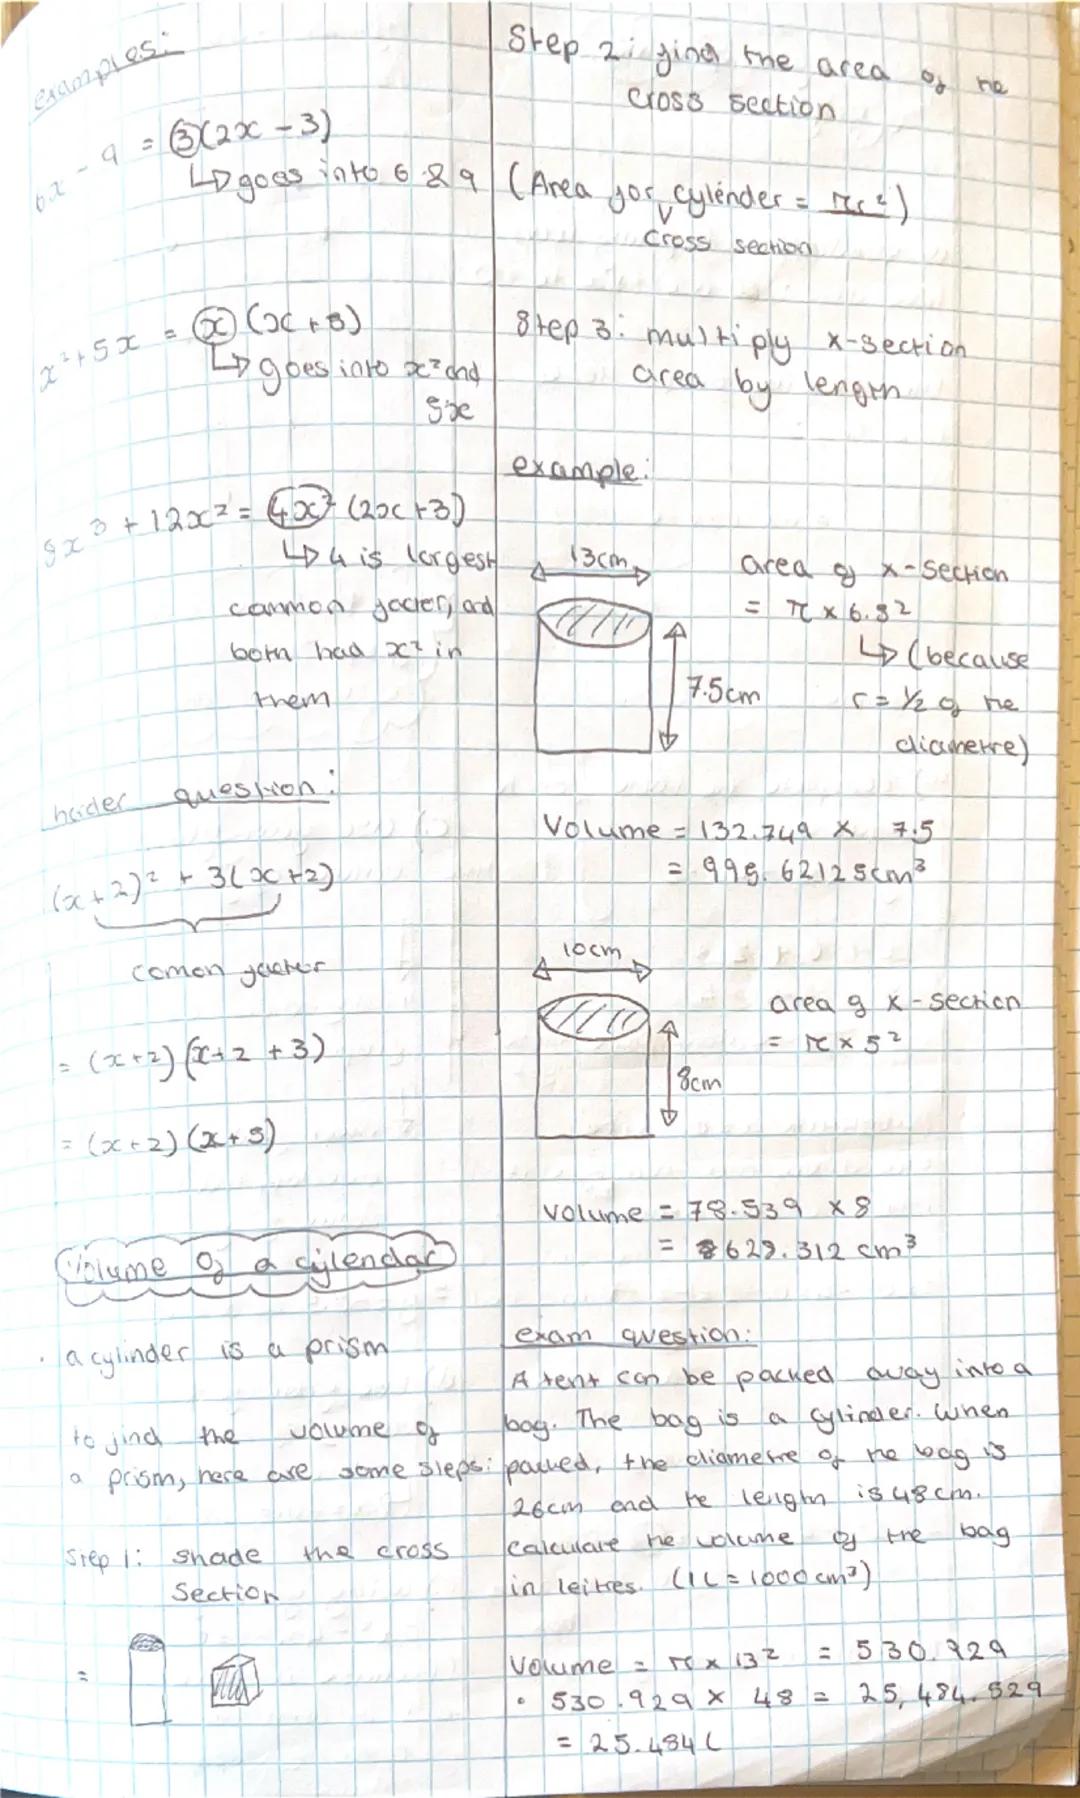 examples:
6x - 9 = 3(2x - 3)
↳ goes into 6 & 9
x² + 5x = x (x + 5)
↳ goes into x² and
5x
8x³ + 12x² = 4x² (2x + 3)
↳ 4 is largest
common facter, and
both had x² in
them
harder question:
(x + 2)² + 3(x + 2)
comon facter
= (x + 2) (x + 2 + 3)
= (x + 2) (x + 5)
Volume of a cylendar
· a cylinder is a prism
to find the volume of
a prism, here are some steps:
Step 1: shade the cross
section
=
Step 2: find the area of the
cross section
(Area for cylinder = πr²)
cross section
Step 3: multiply x-section
area by length
example:
13cm
area of x-section
= π x 6.5²
↳ (because
r = ½ of the
diametre)
7.5cm
Volume = 132.749 x 7.5
= 995.62125cm³
10cm
area of x-section
= π x 5²
8cm
volume = 78.539 x 8
= 628.312 cm³
exam question:
A tent can be packed away into a
bag. The bag is a cylinder. When
packed, the diametre of the bag is
26cm and the length is 48cm.
calculate the volume of the bag
in leitres. (1L = 1000cm³)
Volume = π x 13² = 530.929
· 530.929 x 48 = 25,484.529
= 25.484 L